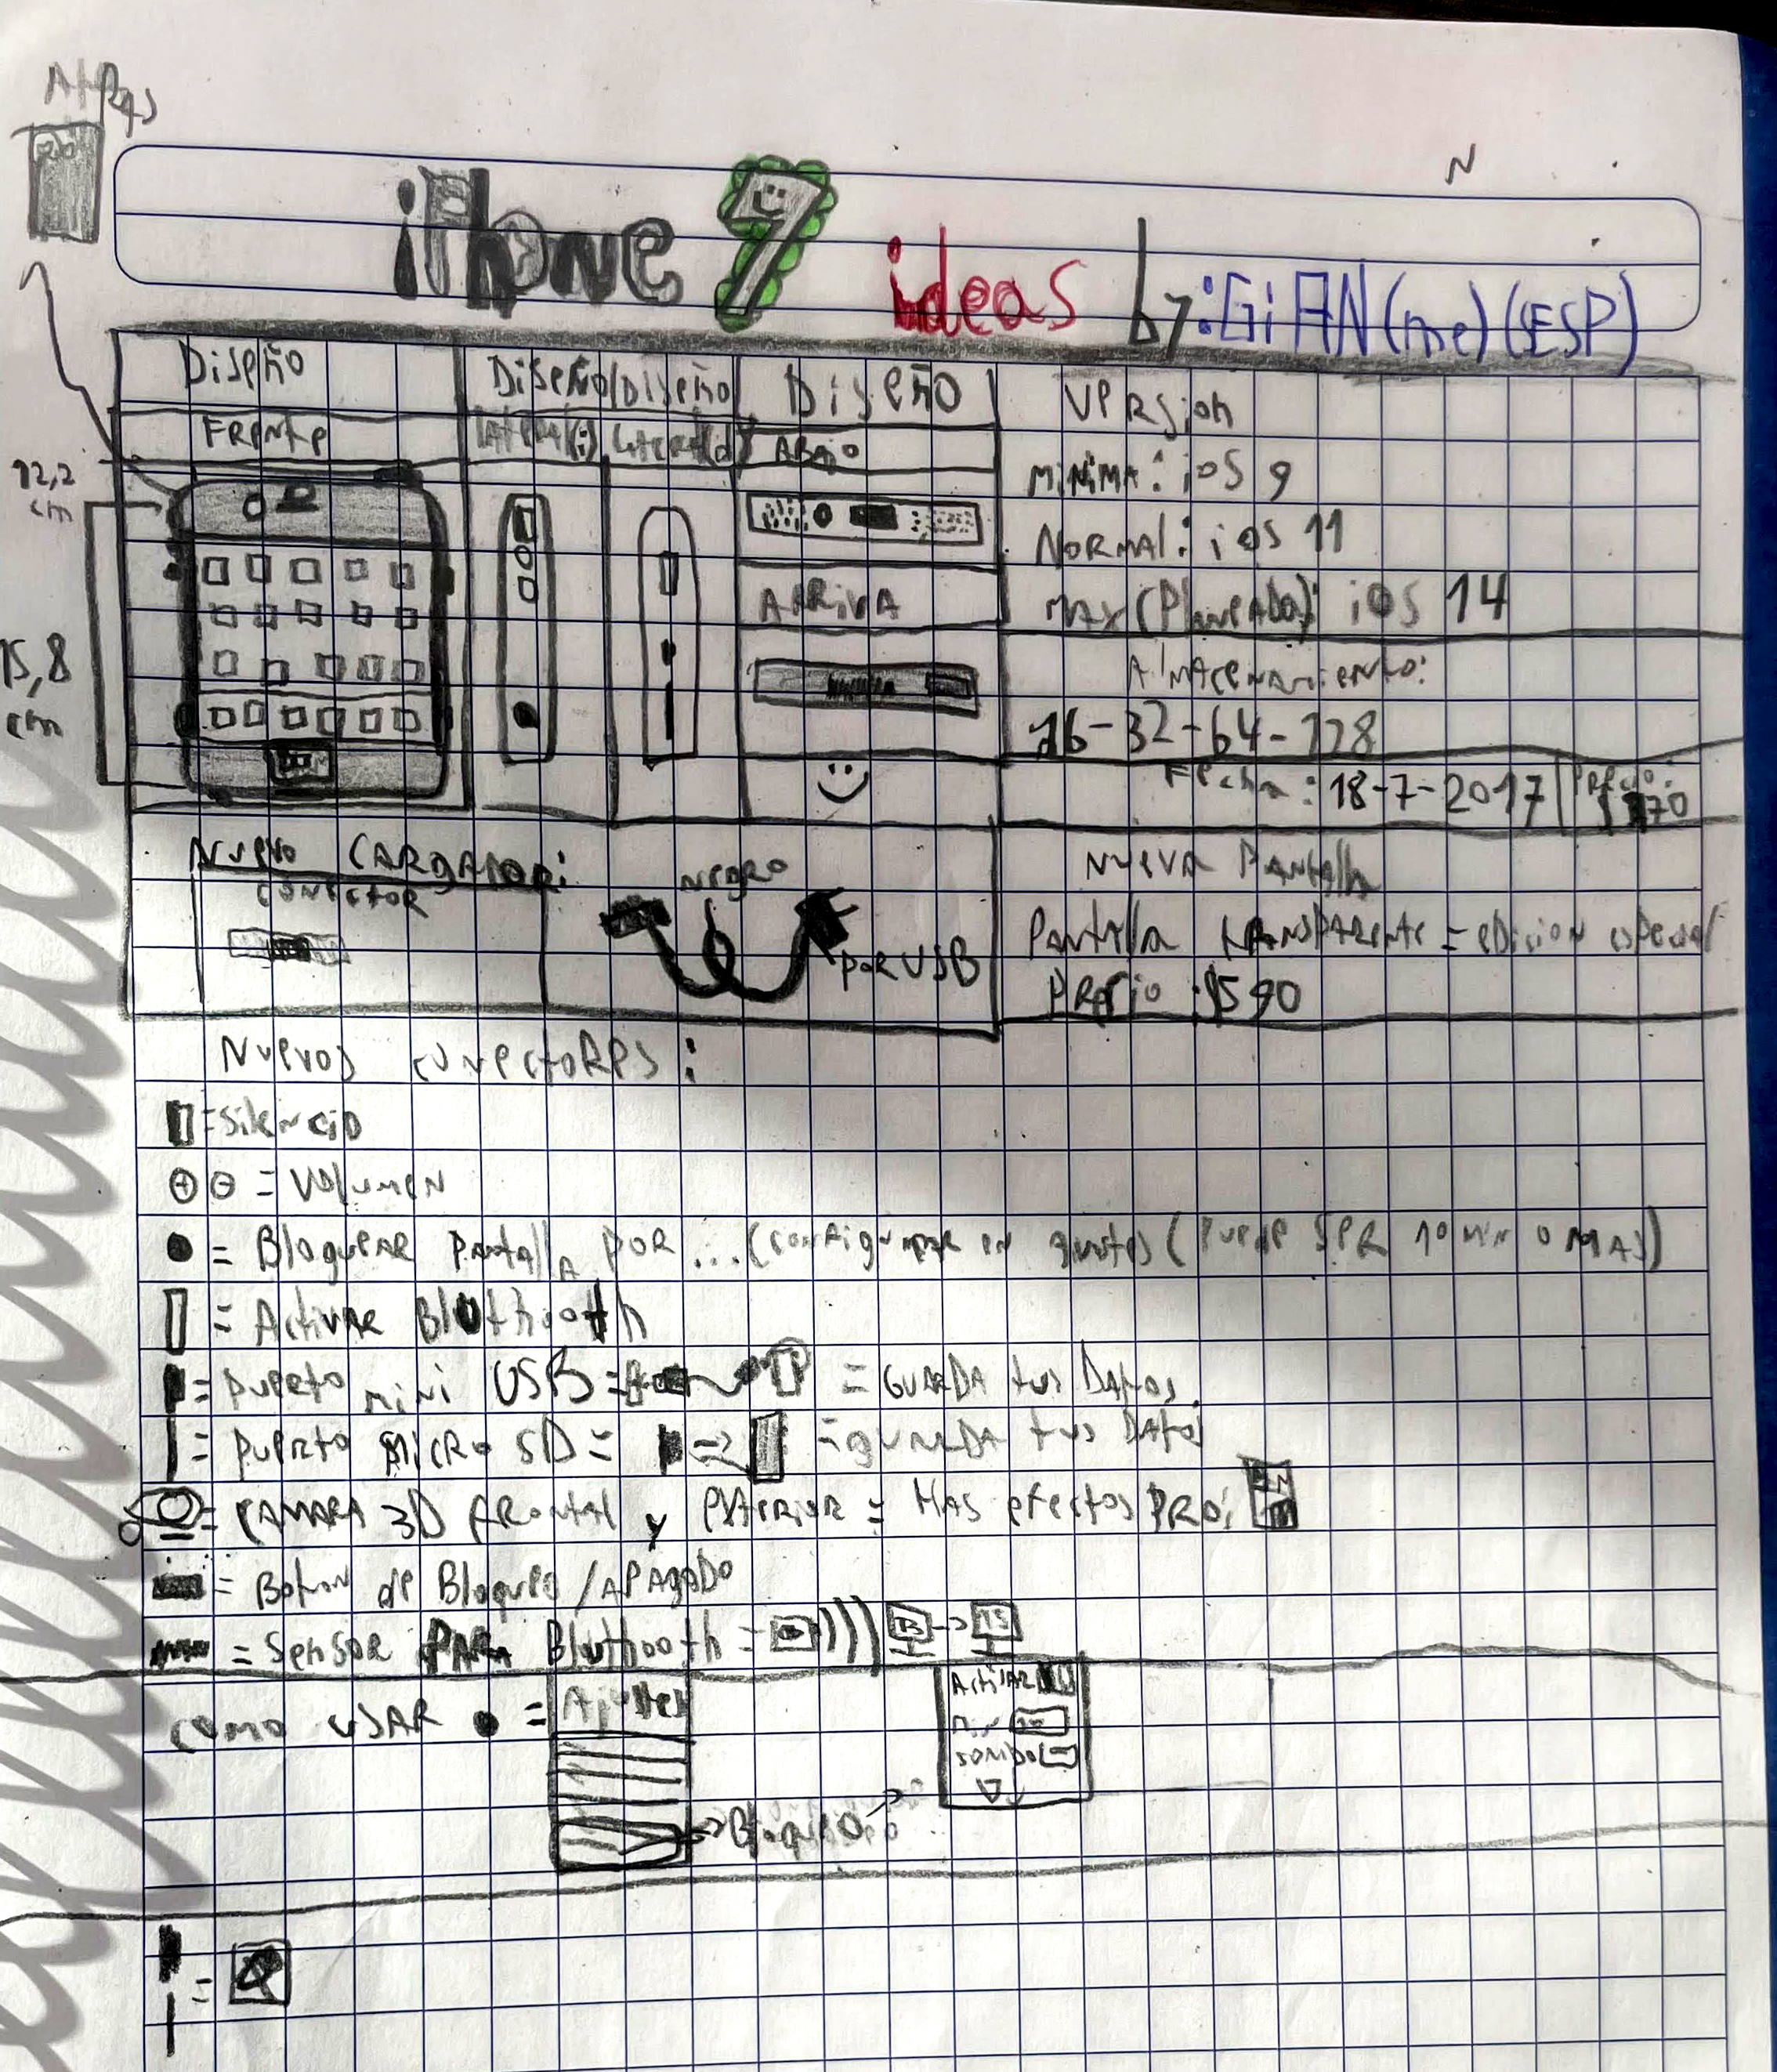 Atras
iPhone 7 ideas by:GiAN(me)(ESP)
Diseño
Diseño/Diseño
Diseño
Version
Frente
Lateral(i) Lateral(d)
ABAjo
12,2 cm
MiNiMA: iOS 9
NORMAl: iOS 11
ARRiVA
MAX(PlaneADo): iOS 14
15,8 cm
AlMAcenAmiento:
16-32-64-128
Fecha: 18-7-2017
Precio:
Nuevo CARgADoR:
conector
Negro
por USB
Nueva PAntallA
PAntallA tRANsPARente = eDicion especial
PRecio: $590
Nuevos conectoRes:
= Silencio
+ - = Volumen
= BloqueAR PAntallA POR ...(configurAR en ajustes (Puede SeR 10 MiN O MAS)
= ActivAR Bluthooth
= puerto mini USB = = GuARDA tus DAtos
= pueRto MicRo SD = => = guARDA tus DAtos
= CAMARA 3D fRontal y exterior = MAS efectos PRO:
= Boton de Bloqueo /APAgADO
= SenSOR PARA Bluthooth =
como uSAR =
Ajustes
ActivAR
Min
sonido
-> Bloqueo ->
=